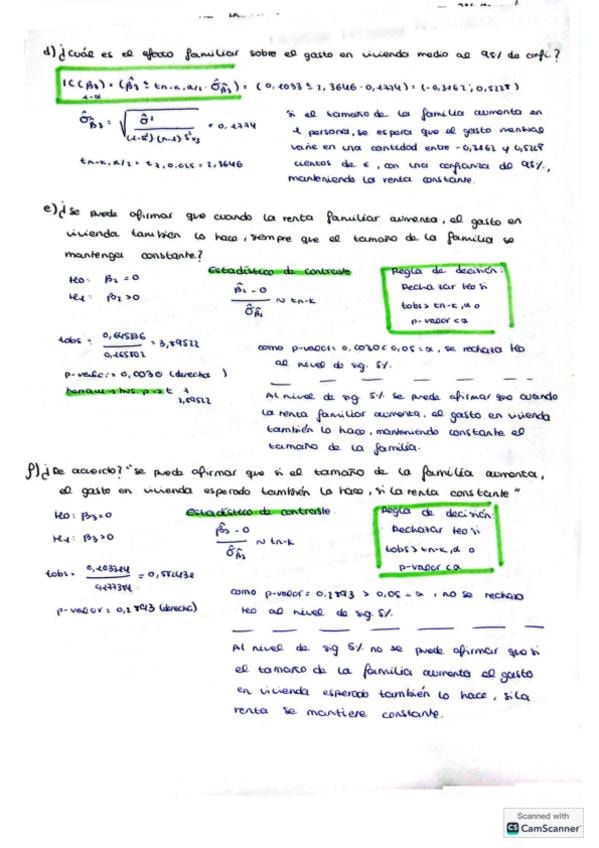 d) ¿cuál es el efecto familiar sobre el gasto en vivienda medio al 95% de confi?
IC(β₃) = (β̂₃ ± tn-k, α/2 · σ̂β̂₃) = (0,1033 ± 2,3646 · 0,1774) = (-0,3162; 0,5228)
1-α
σ̂β̂₃ = = 0,1774
tn-k, α/2 = t7, 0,025 = 2,3646
Si el tamaño de la familia aumenta en
1 persona, se espera que el gasto mensual
varíe en una cantidad entre -0,3162 y 0,5228
cientos de €, con una confianza del 95%,
manteniendo la renta constante.
e) ¿Se puede afirmar que cuando la renta familiar aumenta, el gasto en
vivienda también lo hace, siempre que el tamaño de la familia se
mantenga constante?
H0: β₂ = 0
H1: β₂ > 0
Estadístico de contraste
β̂₂ - 0 / σ̂β̂₂ ~ tn-k
Regla de decisión:
Rechazar H0 si
tobs > tn-k, α o
p-valor < α
tobs = = 3,89522
p-valor = 0,0030 (derecha)
3,89522
como p-valor = 0,0030 < 0,05 = α, se rechaza H0
al nivel de sig. 5%
Al nivel de sig 5% se puede afirmar que cuando
la renta familiar aumenta, el gasto en vivienda
también lo hace, manteniendo constante el
tamaño de la familia.
f) ¿De acuerdo? "se puede afirmar que si el tamaño de la familia aumenta,
el gasto en vivienda esperado también lo hace, si la renta constante"
H0: β₃ = 0
H1: β₃ > 0
Estadístico de contraste
β̂₃ - 0 / σ̂β̂₃ ~ tn-k
Regla de decisión:
Rechazar H0 si
tobs > tn-k, α o
p-valor < α
tobs =
p-valor = 0,2893 (derecha)
como p-valor = 0,2893 > 0,05 = α, no se rechaza
H0 al nivel de sig. 5%
Al nivel de sig 5% no se puede afirmar que si
el tamaño de la familia aumenta el gasto
en vivienda esperado también lo hace, si la
renta se mantiene constante.
Scanned with
CS CamScanner